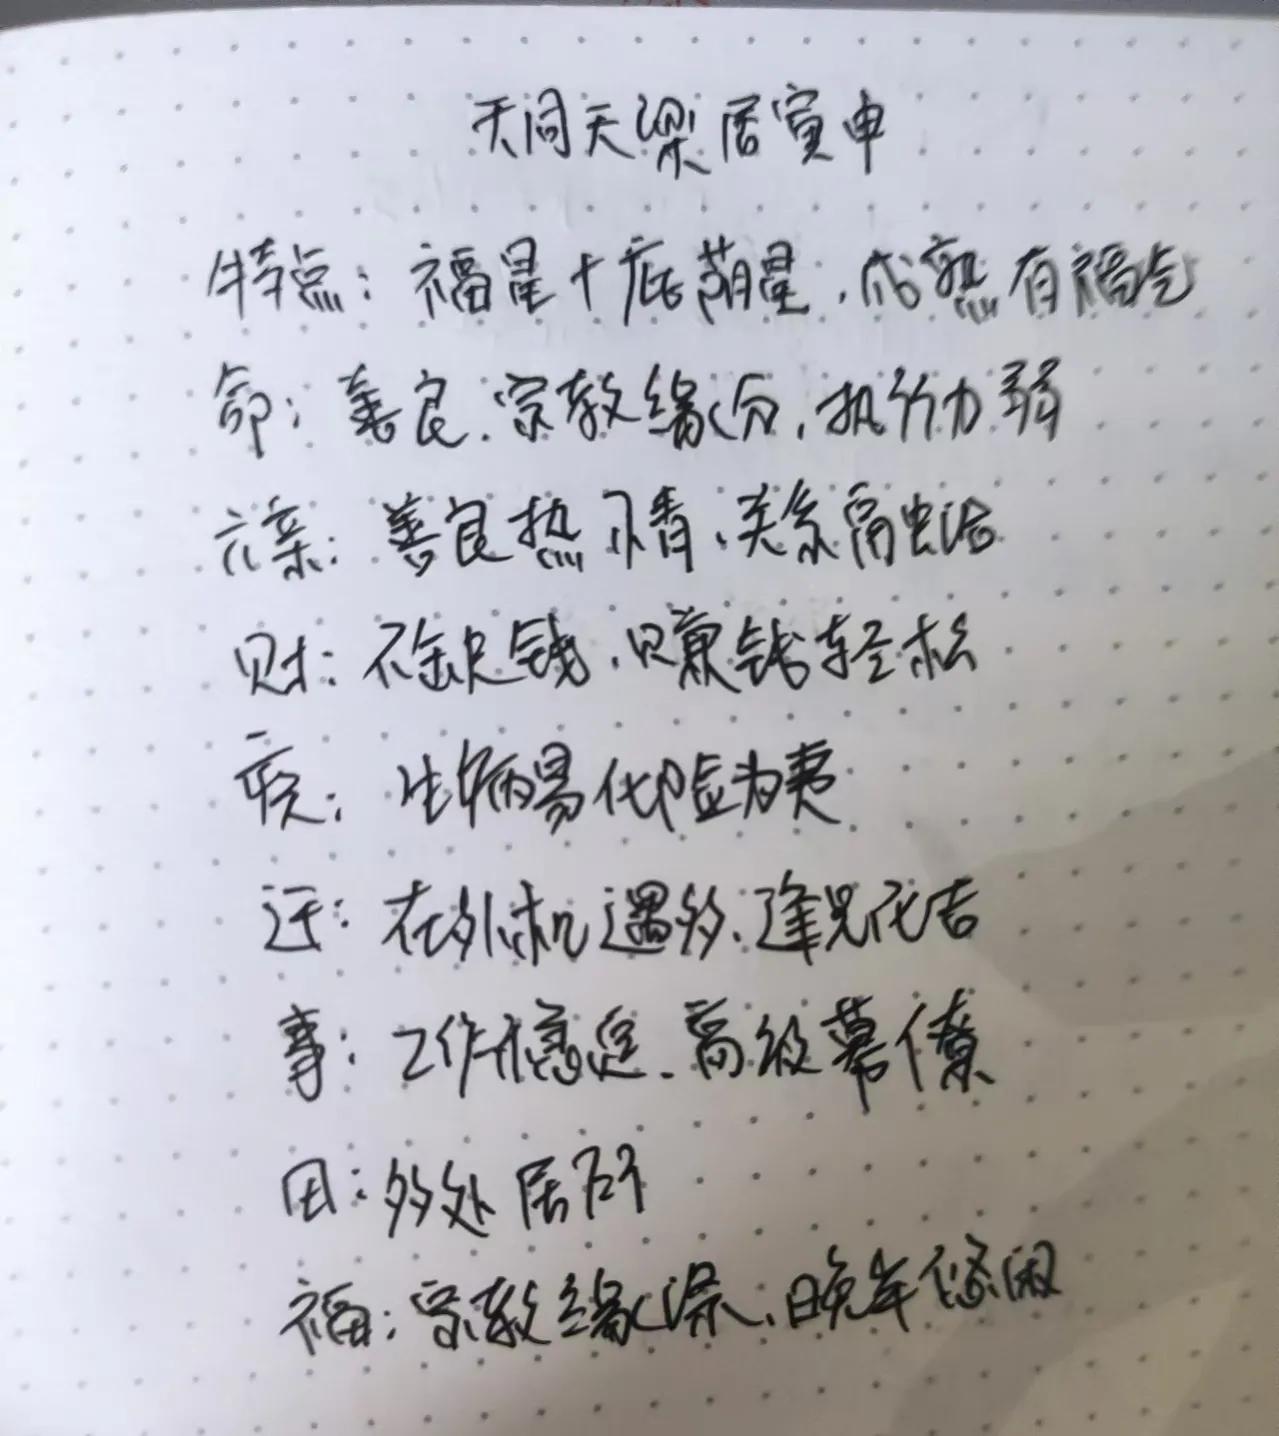 天同天梁居寅申
特点：福星+庇荫星，成熟有福气
命：善良、宗教缘分，执行力弱
六亲：善良热情、关系融洽
财：不缺钱，只赚钱轻松
疾：生病易化虚为夷
迁：在外机遇多、逢凶化吉
事：工作稳定、高级幕僚
田：多处居所
福：宗教缘深、晚年悠闲